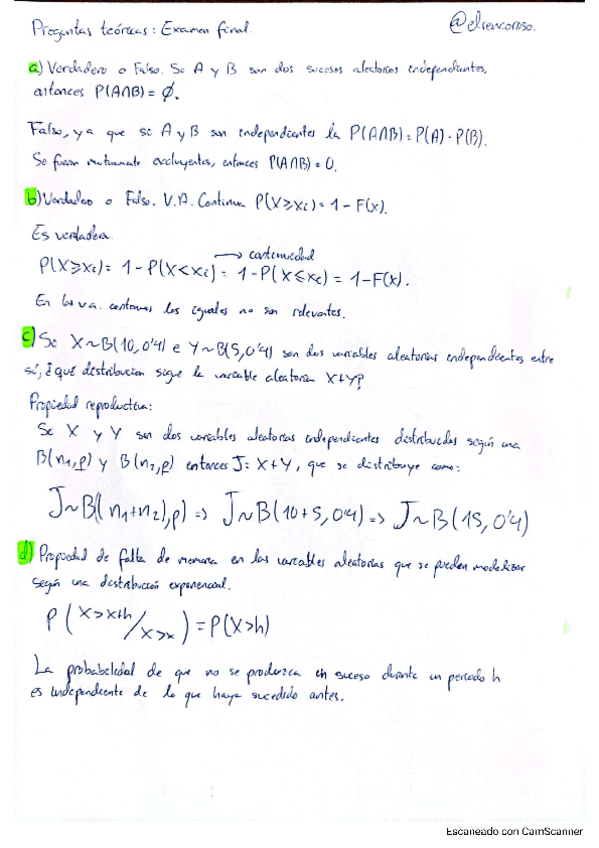 Preguntas teóricas: Examen final.
@elrencoroso.
a) Verdadero o Falso. Si A y B son dos sucesos aleatorios independientes,
entonces P(A∩B) = Ø.
Falso, ya que si A y B son independientes la P(A∩B) = P(A) · P(B).
Si fueran mutuamente excluyentes, entonces P(A∩B) = 0.
b) Verdadero o Falso. V.A. Continua P(X≥xi) = 1 - F(x).
Es verdadera.
→ continuidad
P(X≥xi) = 1 - P(X<xi) = 1 - P(X≤xi) = 1 - F(x).
En las v.a. continuas los iguales no son relevantes.
c) Si X~B(10, 0'4) e Y~B(5, 0'4) son dos variables aleatorias independientes entre
sí, ¿qué distribución sigue la variable aleatoria X+Y?
Propiedad reproductiva:
Si X y Y son dos variables aleatorias independientes distribuidas según una
B(n1, p) y B(n2, p) entonces J = X+Y, que se distribuye como:
J~B((n1+n2), p) => J~B(10+5, 0'4) => J~B(15, 0'4)
d) Propiedad de falta de memoria en las variables aleatorias que se pueden modelizar
según una distribución exponencial.
P(X>x+h / X>x) = P(X>h)
La probabilidad de que no se produzca un suceso durante un periodo h
es independiente de lo que haya sucedido antes.
Escaneado con CamScanner